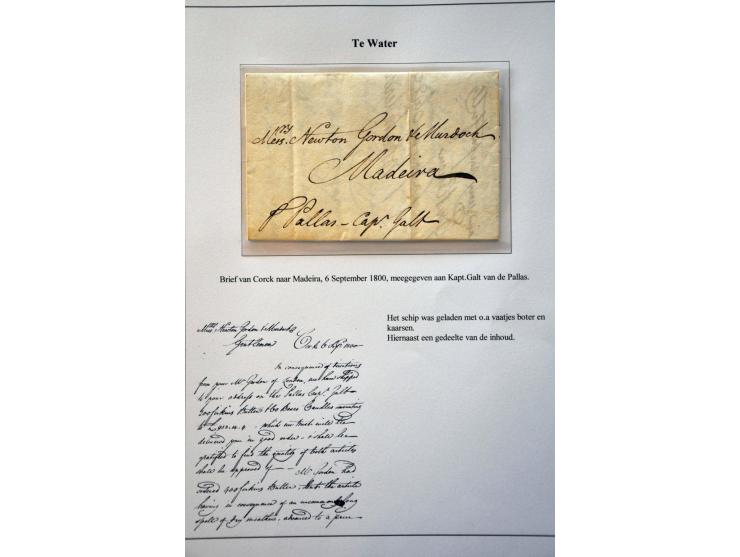 Te Water
Messrs. Newton Gordon & Murdoch
Madeira
P Pallas - Capt. Galt
Brief van Corck naar Madeira, 6 September 1800, meegegeven aan Kapt.Galt van de Pallas.
Het schip was geladen met o.a vaatjes boter en
kaarsen.
Hiernaast een gedeelte van de inhoud.
Messrs Newton Gordon & Murdoch
Gentlemen Cork 6 Sepr 1800
In consequence of directions
from your Mr Gordon of London, we have shipped
to your address on the Pallas Capt. Galt
200 firkins Butter & 60 Boxes Candles amounting
to £ - which we trust will be
delivered you in good order - & shall be
gratified to find the quality of both articles
shall be approved of - Mr Gordon had
ordered 400 firkins Butter, but the article
having in consequence of an uncommon long
spell of dry weather, advanced to a price